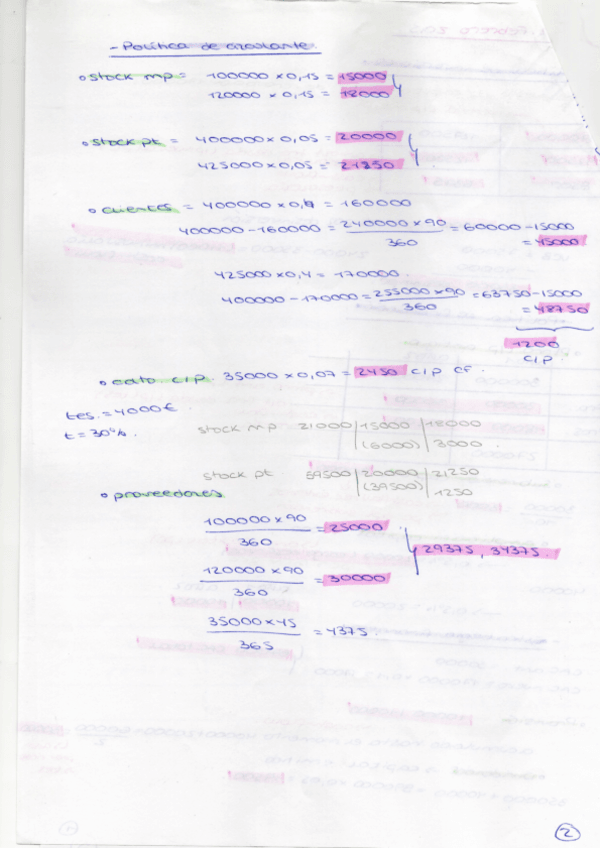 - Política de circulante.
• stock mp = 100000 x 0,15 = 15000
120000 x 0,15 = 18000
• stock pt = 400000 x 0,05 = 20000
425000 x 0,05 = 21250
• clientes = 400000 x 0,4 = 160000
400000 - 160000 = 240000 x 90 / 360 = 60000 - 15000
= 45000
425000 x 0,4 = 170000.
400000 - 170000 = 255000 x 90 / 360 = 63750 - 15000
= 48750
1200
c/p.
• c/p. 35000 x 0,07 = 2450 c/p CF.
tes. = 4000 €
t = 30%.
stock mp 21000 | 15000 | 18000
(6000) | 3000
stock pt 59500 | 20000 | 21250
(39500) | 1250
• proveedores
100000 x 90 / 360 = 25000
29375, 34375.
120000 x 90 / 360 = 30000
35000 x 45 / 365 = 4375.
2